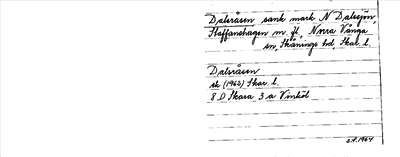 Dalsråsen sank mark N Dalsjön,
Staffanshagen m. fl., Norra Vånga
sn, Skånings hd, Skar. l.
Dalsråsen
ek (1960) Skar. l.
8 D Skara 3 a Vinköl
S.H. 1964